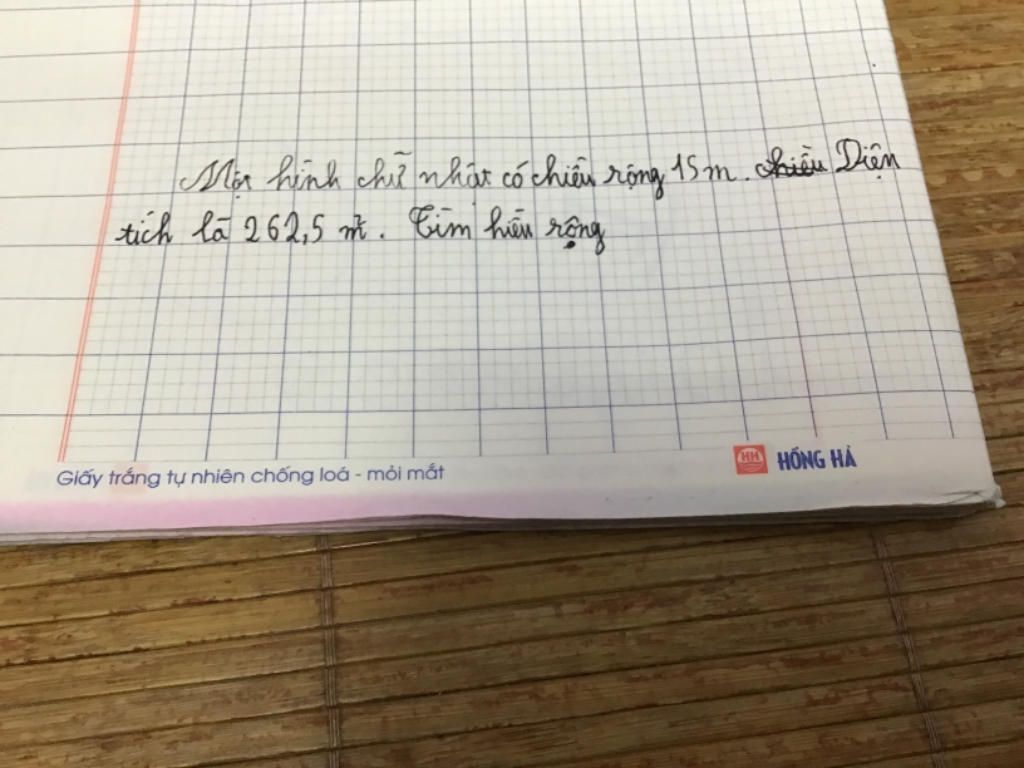 Một hình chữ nhật có chiều rộng 15 m. chiều Diện
tích là 262,5 m². Tìm hiều rộng
Giấy trắng tự nhiên chống loá - mỏi mắt
HH HỒNG HÀ